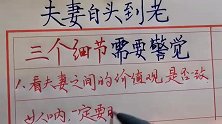 夫妻白头到老
三个细节需要警觉
1.看夫妻之间的价值观是否一致
人呐,一定要